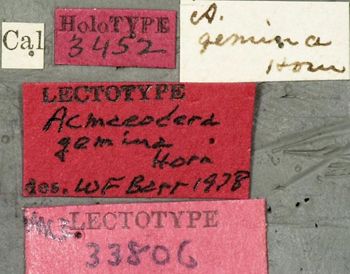 Cal
HoloTYPE
3452
A.
gemina
Horn
LECTOTYPE
Acmaeodera
gemina
Horn
des. WF Barr 1978
LECTOTYPE
33806